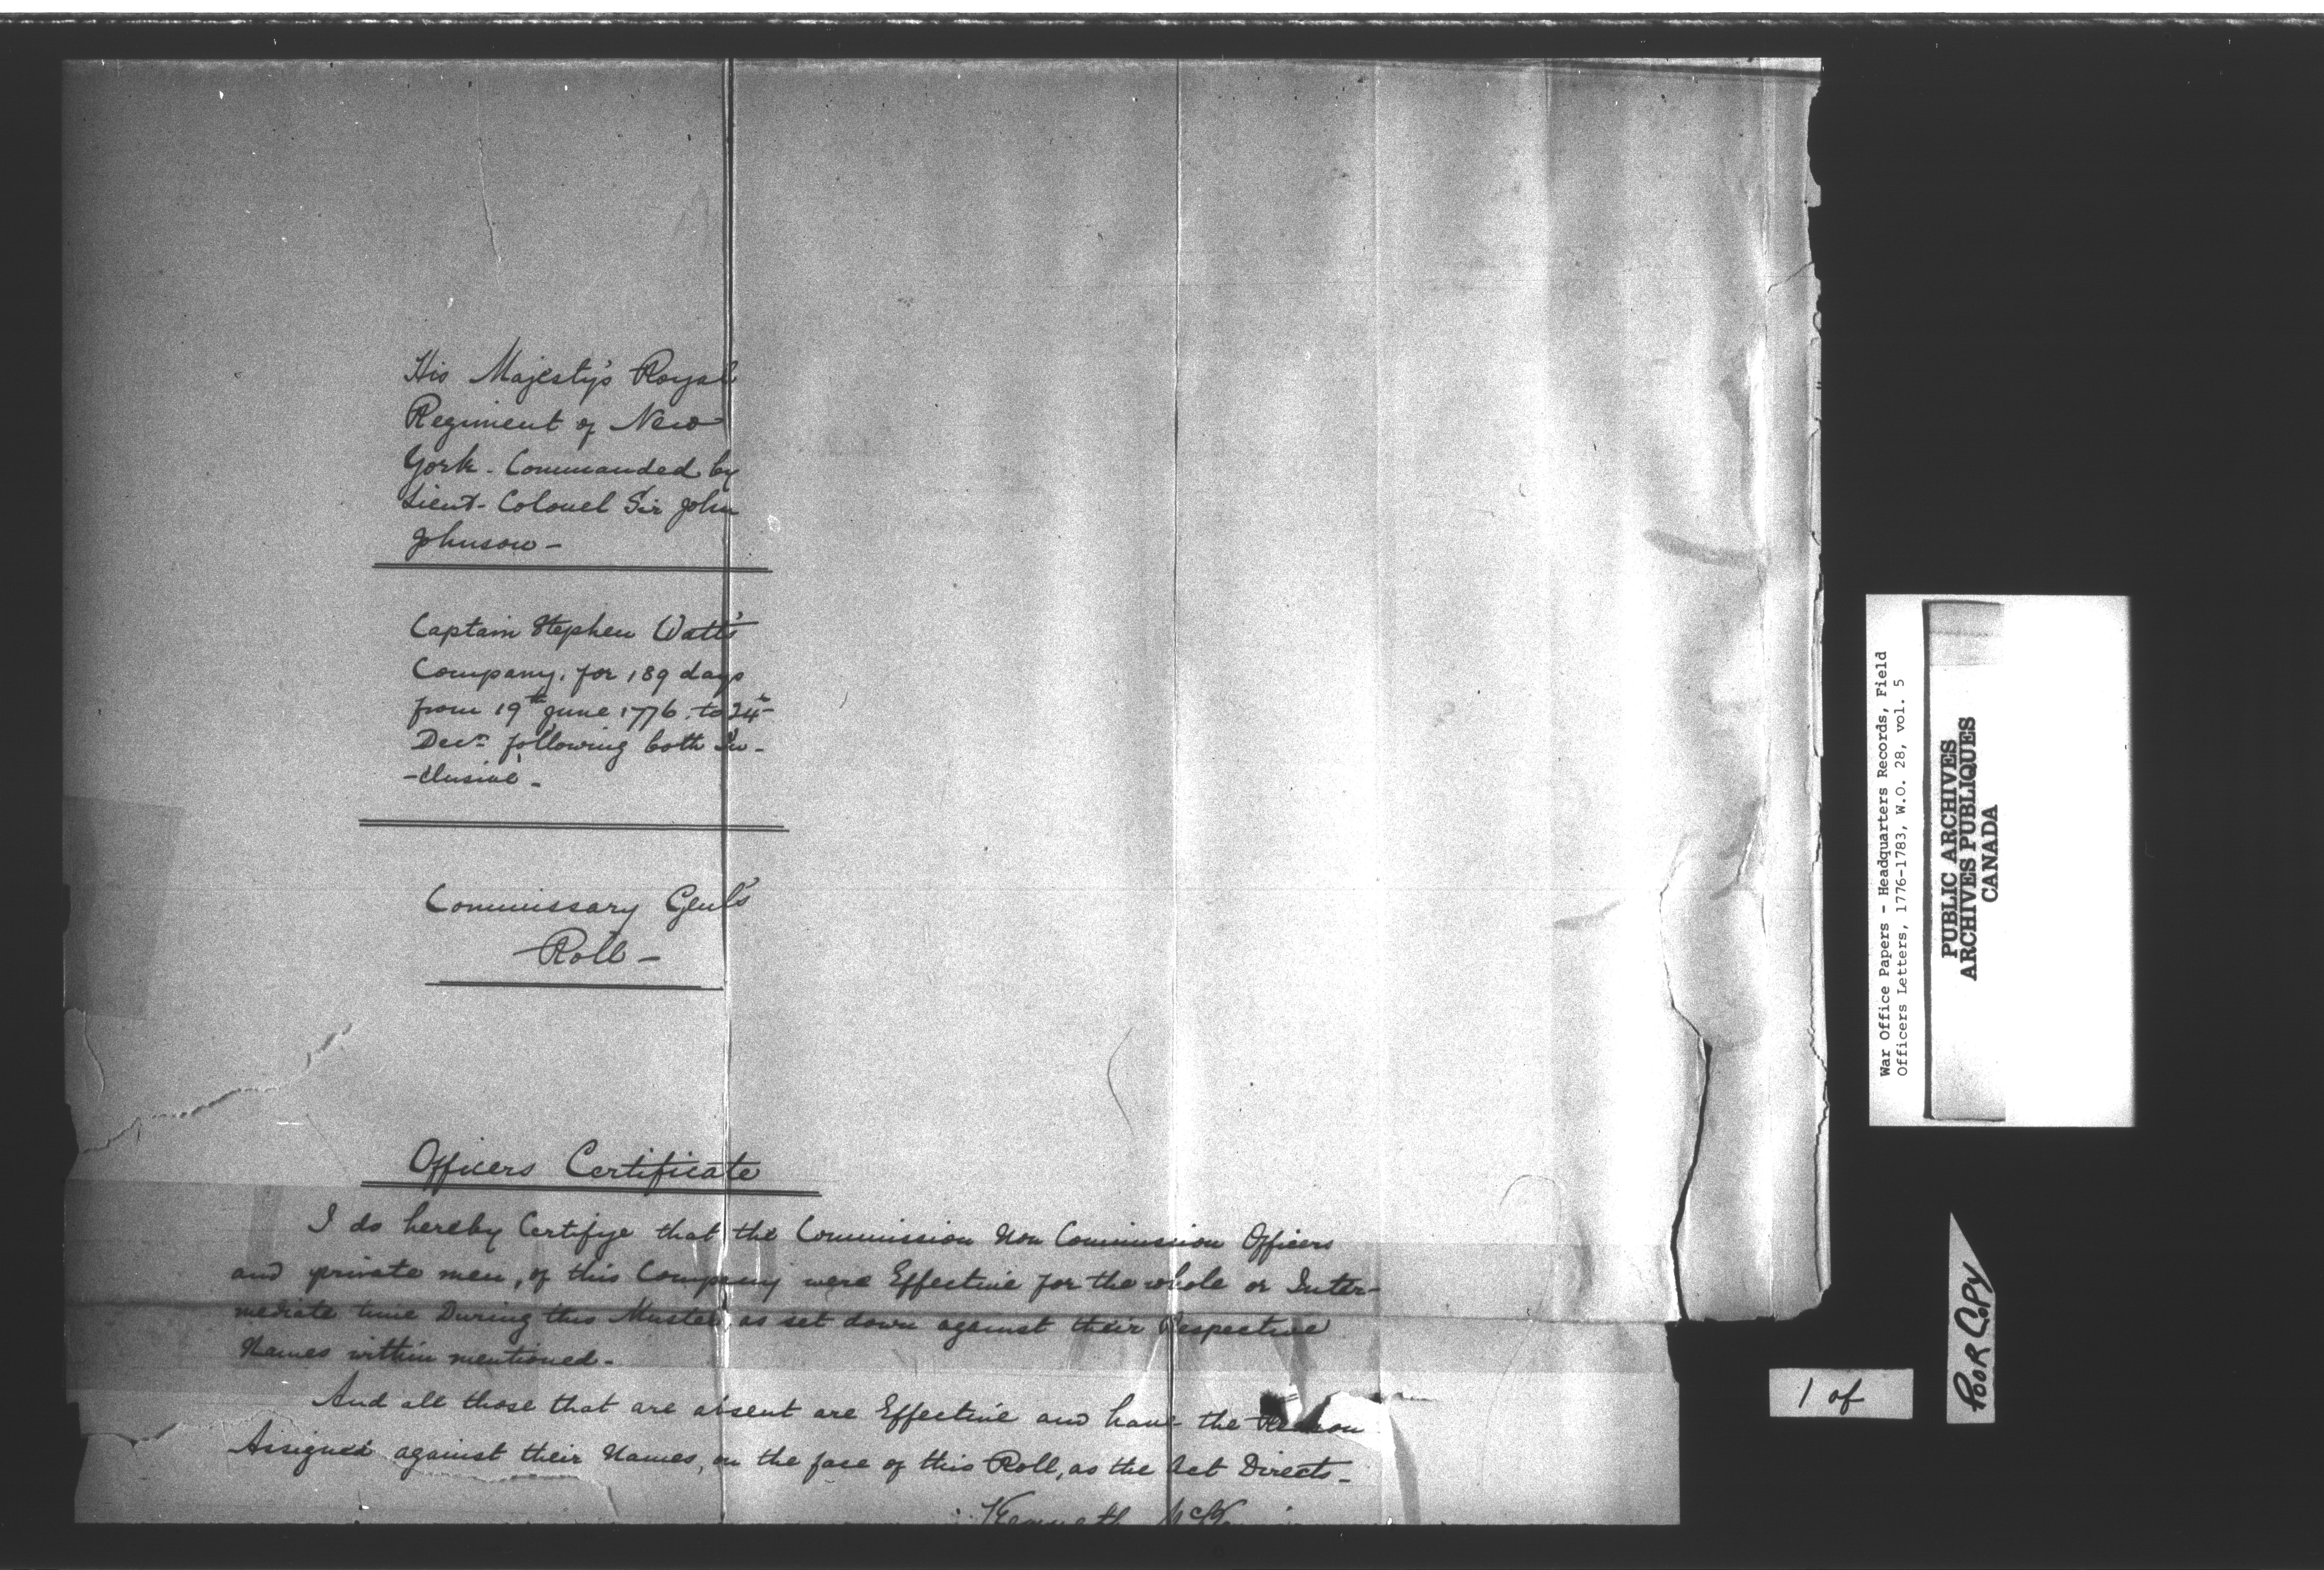 His Majesty's Royal
Regiment of New
York - Commanded by
Lieut- Colonel Sir John
Johnson -
Captain Stephen Watts
Company, for 189 days
from 19th June 1776. to 24th
Decr following both In-
-clusive -
Commissary Genl's
Roll -
Officers Certificate
I do hereby Certifye that the Commission Non Commission Officers
and private men, of this Company were Effective for the whole or Inter-
mediate time During this Muster as set down against their Respective
Names within mentioned -
And all those that are absent are Effective and have the Reason
Assigned against their Names, on the face of this Roll, as the Act Directs -
Kenneth
War Office Papers - Headquarters Records, Field
Officers Letters, 1776-1783, W.O. 28, vol. 5
PUBLIC ARCHIVES
ARCHIVES PUBLIQUES
CANADA
POOR COPY
1 of